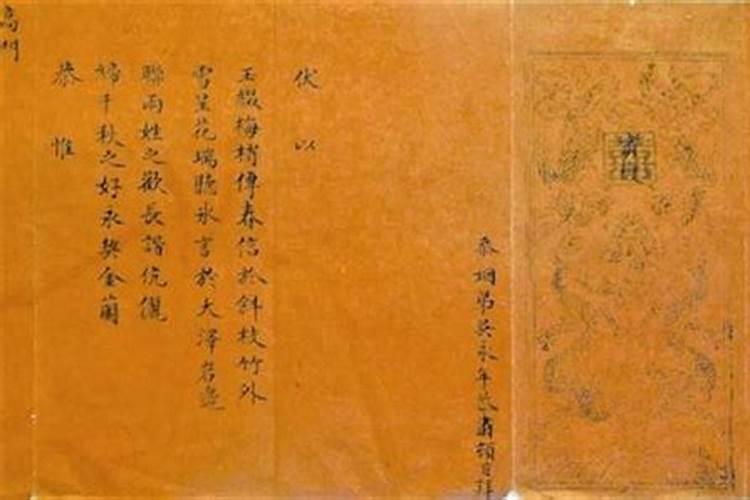 忝姻弟吳永年肅頓首拜
伏以
玉綴梅梢傳春信於斜枝竹外
雪呈花瑞聽氷言於大澤岩邊
聯兩姓之歡長諧伉儷
締千秋之好永契金蘭
恭惟
高門